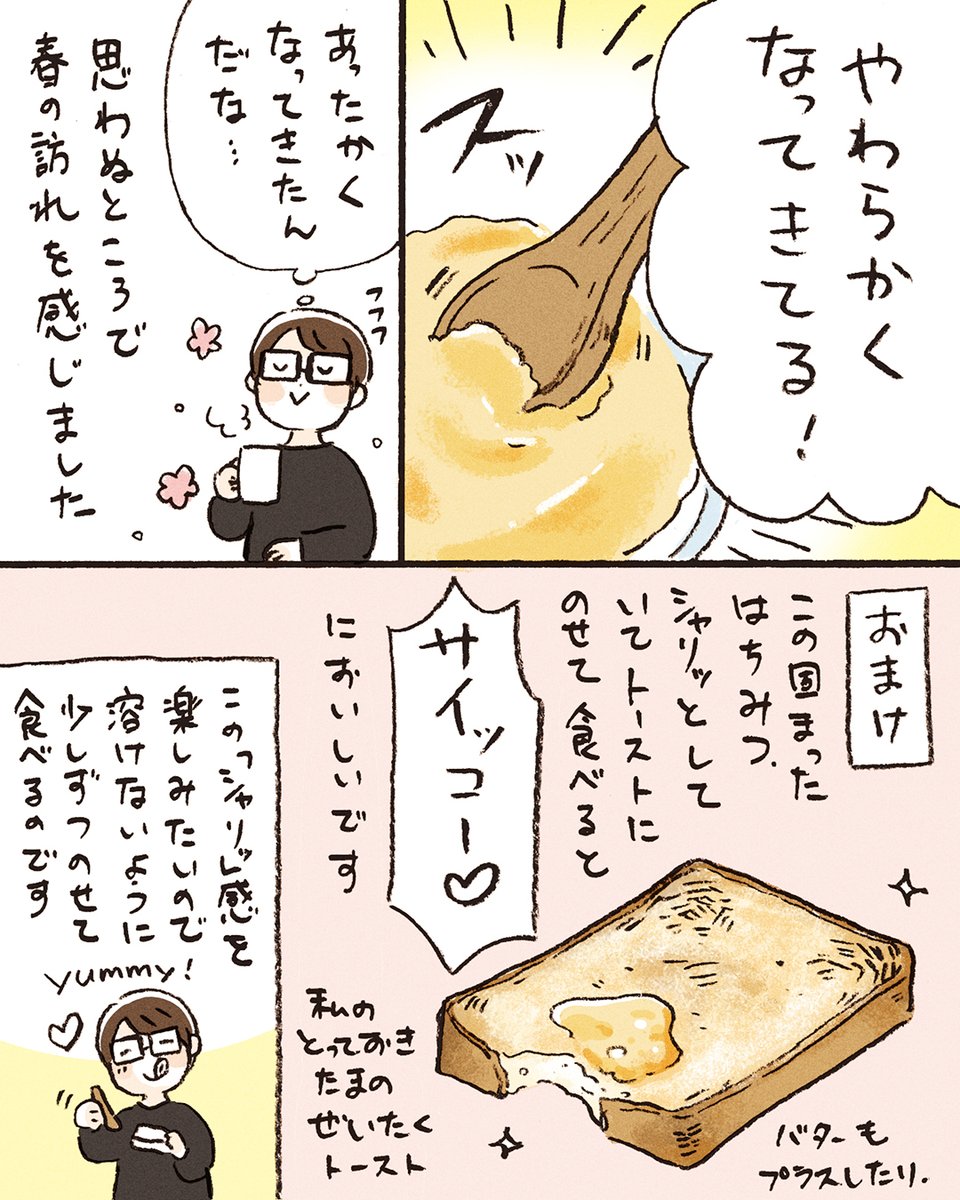 やわらかく
なってきてる！
スッ
あったかく
なってきたん
だな…
フフフ
思わぬところで
春の訪れを感じました
おまけ
この固まった
はちみつ、
シャリッとして
いてトーストに
のせて食べると
サイッコー♡
においしいです
バターも
プラスしたり。
私の
とっておき
たまの
ぜいたく
トースト
このっシャリッ感を
楽しみたいので
溶けないように
少しずつのせて
食べるのです
yummy!